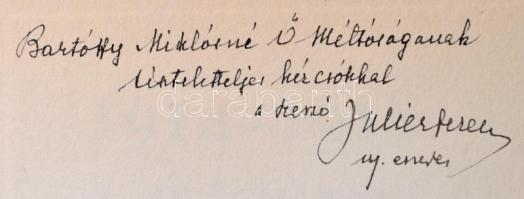 Bartóffy Miklósné Ő Méltóságának
tiszteletteljes kézcsókkal
a szerző
Julier Ferenc